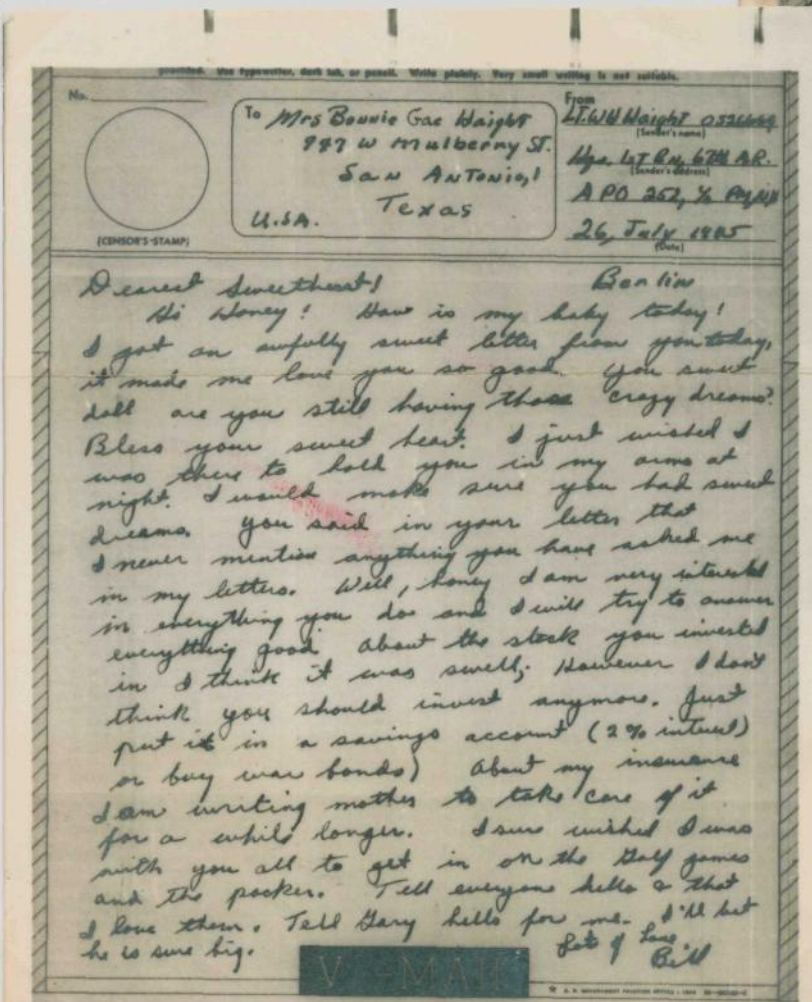 provided. Use typewriter, dark ink, or pencil. Write plainly. Very small writing is not suitable.
No.
(CENSOR'S STAMP)
To Mrs Bonnie Gae Haight
W Mulberry St.
San Antonio,1
Texas
U.S.A.
From
LT. W H Haight
(Sender's name)
Hqs, 1st Bn, 67th A.R.
(Sender's address)
APO 252, % PM, NY
26, July 1945
(Date)
Dearest Sweetheart! Berlin
Hi Honey! How is my baby today!
I got an awfully sweet letter from you today,
it made me love you so good. You sweet
doll are you still having those crazy dreams?
Bless your sweet heart. I just wished I
was there to hold you in my arms at
night. I would make sure you had sweet
dreams. You said in your letter that
I never mention anything you have asked me
in my letters. Well, honey I am very interested
in everything you do and I will try to answer
everything good. About the stock you invested
in I think it was swell; However I don't
think you should invest anymore. Just
put it in a savings account (2% interest)
or buy war bonds) About my insurance
I am writing mother to take care of it
for a while longer. I sure wished I was
with you all to get in on the Golf games
and the pocker. Tell everyone hello & that
I love them. Tell Gary hello for me. I'll bet
he is sure big. Lots of Love
Bill
V - MAIL